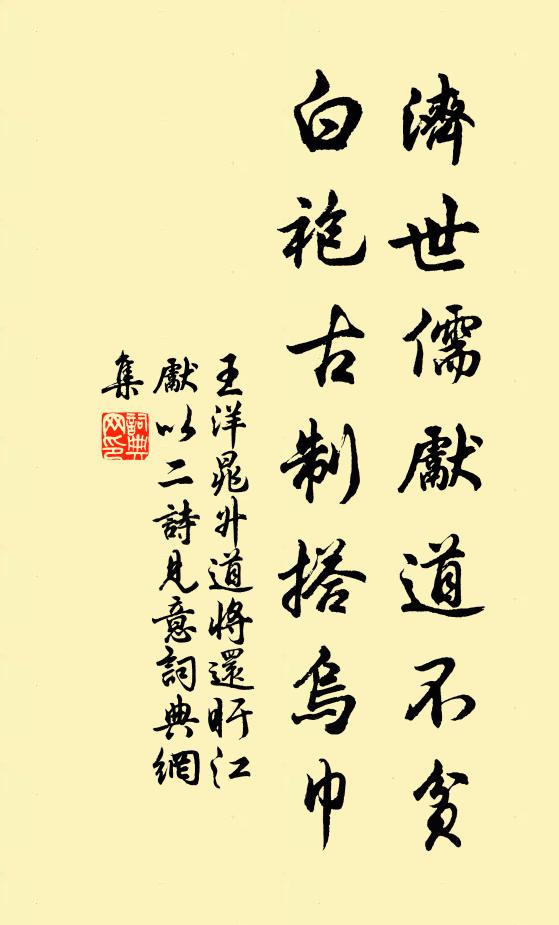 濟世儒獻道不貧
白袍古制搭烏巾
王洋晁升道將還盱江
獻以二詩見意詞典網
集
詞典
网印